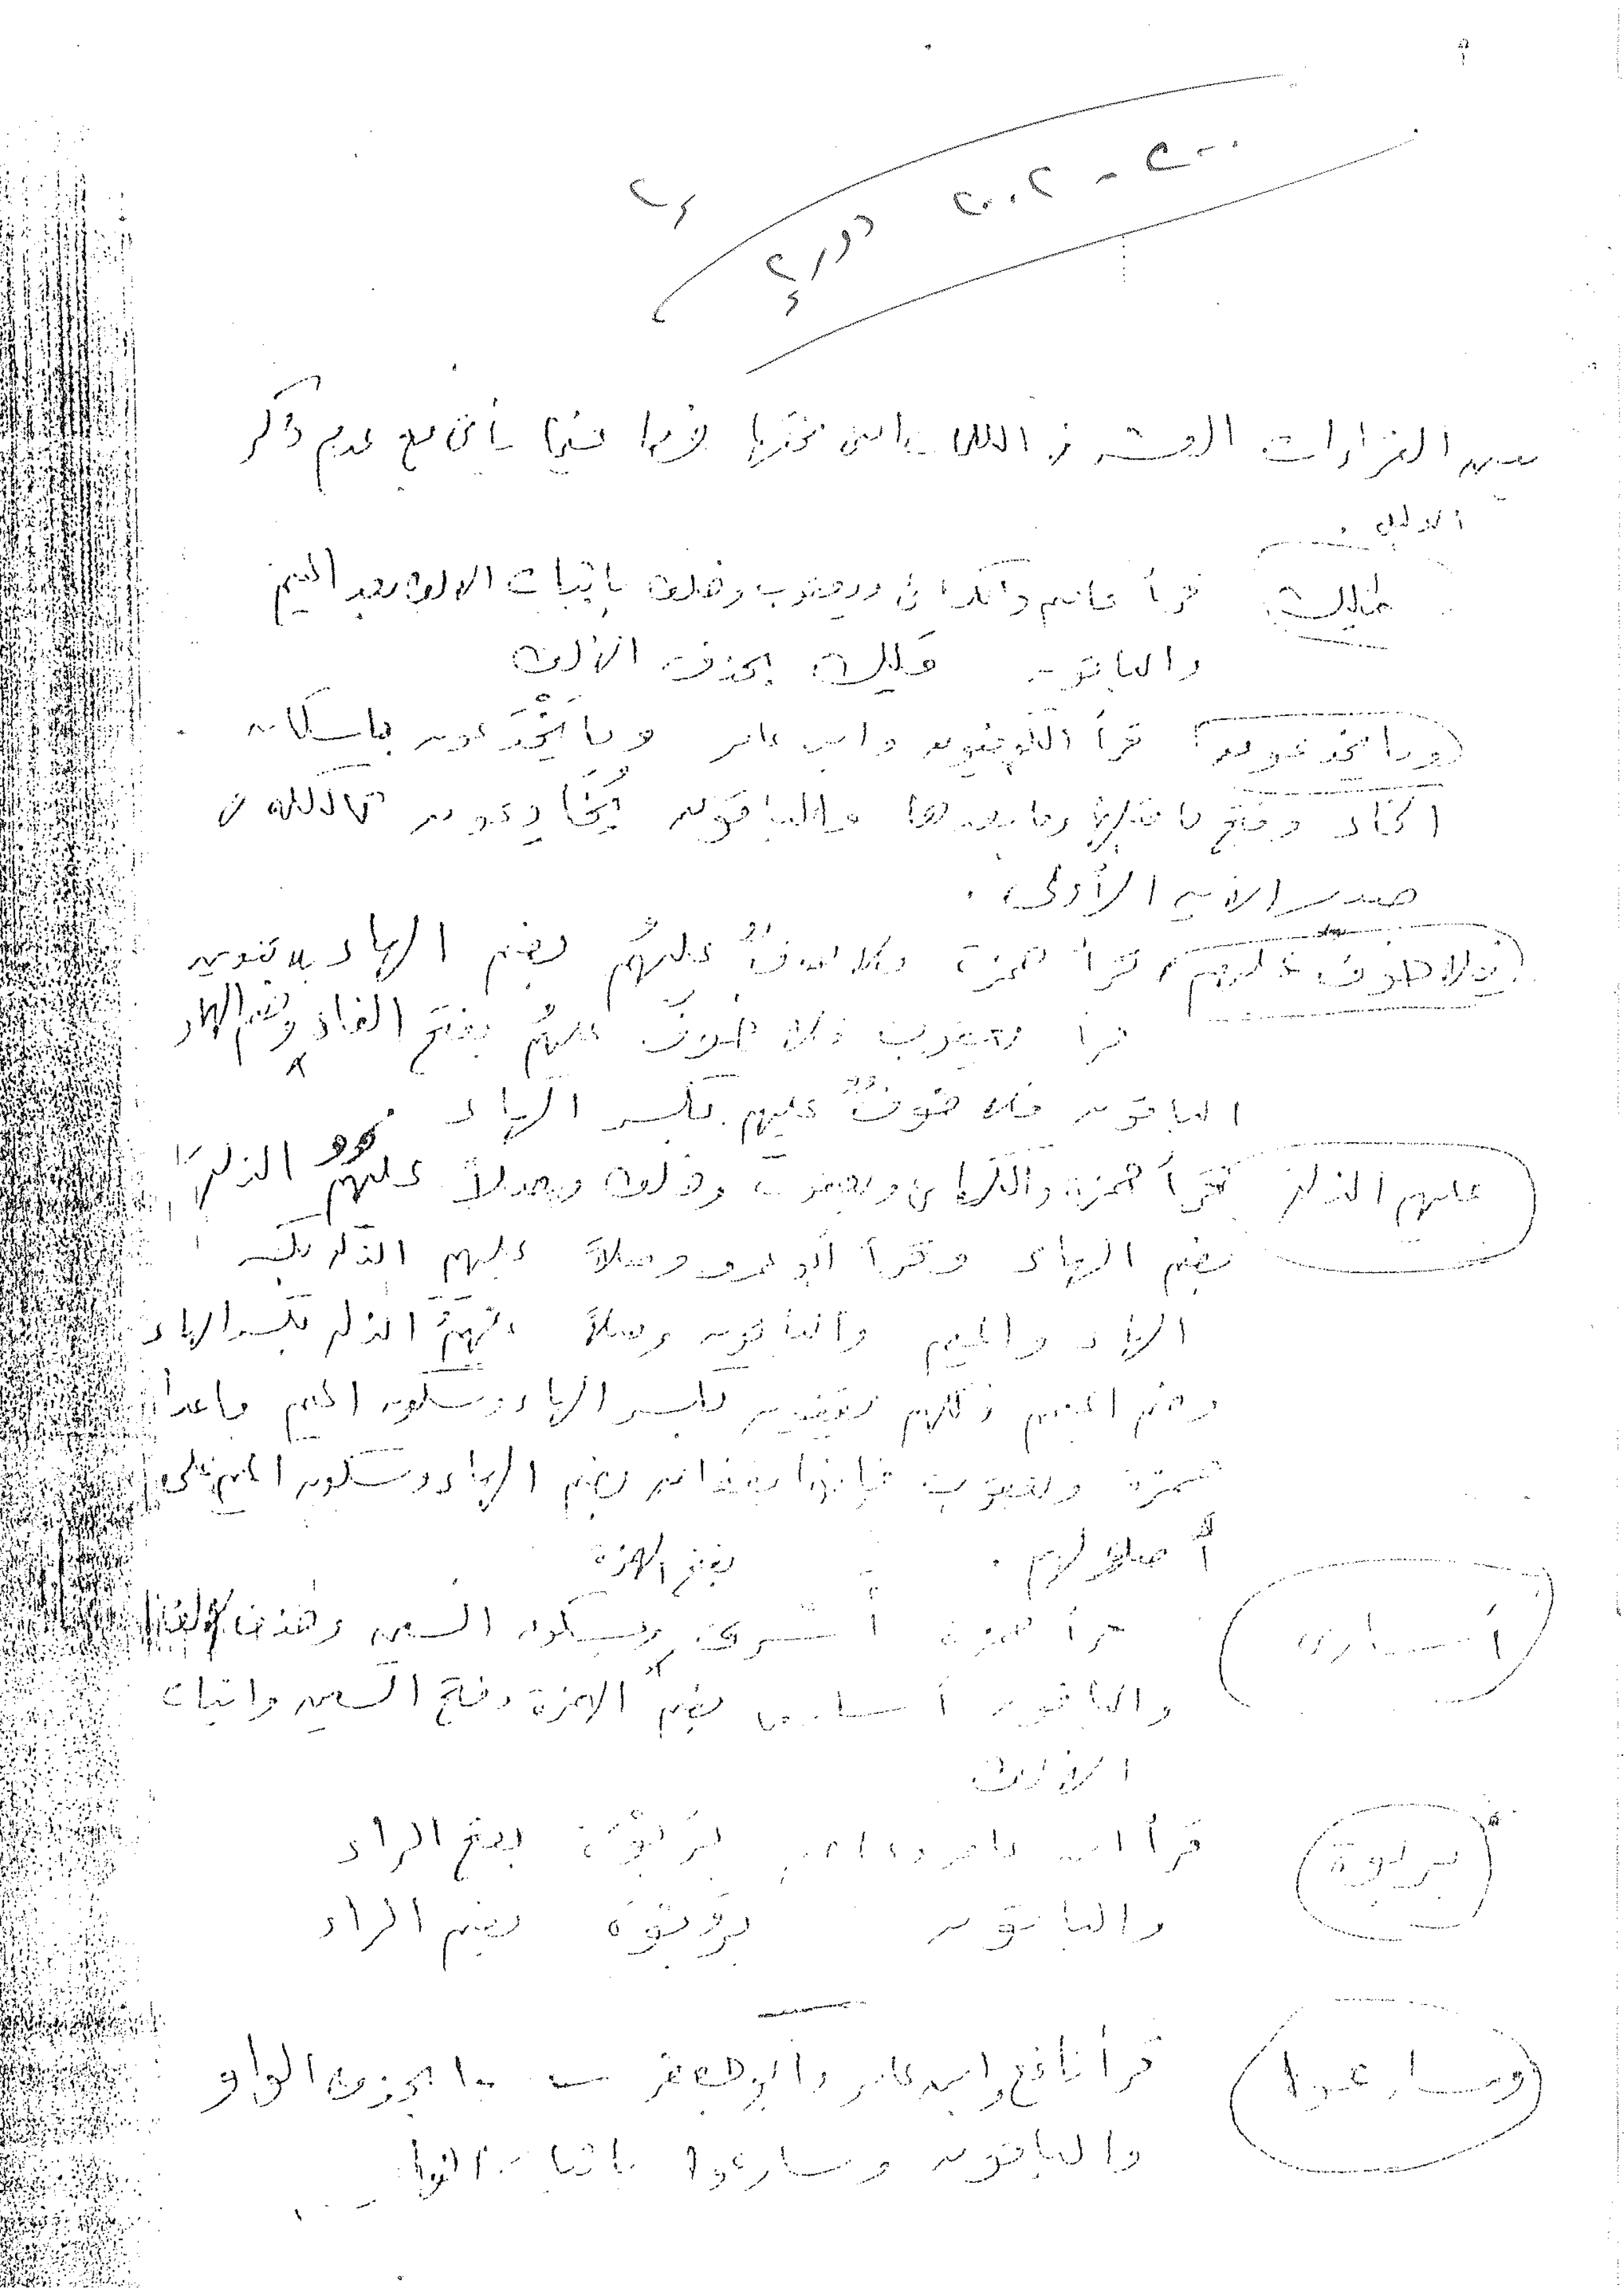 ٢٠٠٢ - ٢٠٠٠
دور ٢
بين القراءات العشر في الكلمات التي تحتها خط فيما يأتي مع عدم ذكر
الدليل .
ملك قرأ عاصم والكسائي ويعقوب وخلف باثبات الالف بعد الميم
والباقون ملك بحذف الألف
وما يخدعون قرأ الكوفيون وابن عامر وما يَخْدَعون باسكان
الخاء وفتح ما قبلها وما بعدها والباقون يُخَادِعون كالكلمة
صدر الآية الأولى .
فلا خوف عليهم قرأ حمزة فلا خوفٌ عليهُم بضم الهاء بلا تنوين
قرأ يعقوب فلا خوفَ عليهُم بفتح الفاء وضم الهاء
الباقون فلا خوفٌ عليهم بكسر الهاء
عليهم الذلة قرأ حمزة والكسائي ويعقوب وخلف وصلاً عليهُمُ الذلة
بضم الهاء وقرأ أبو عمرو وصلاً عليهم الذلة بكسر
الهاء والميم والباقون وصلاً الذلة بكسر الهاء
وضم الميم وكلهم يقفون بكسر الهاء وسكون الميم ما عدا
حمزة ويعقوب فإنهما يقفان بضم الهاء وسكون الميم على
أصولهم .
أسارى قرأ حمزة أسرى بفتح الهمزة وسكون السين وحذف الألف
والباقون أسارى بضم الهمزة وفتح السين واثبات
الألف
بربوة قرأ ابن عامر وعاصم بَربوة بفتح الراء
والباقون بربوة بضم الراء
وسارعوا قرأ نافع وابن عامر وأبو جعفر بحذف الواو
والباقون وسارعوا باثبات الواو